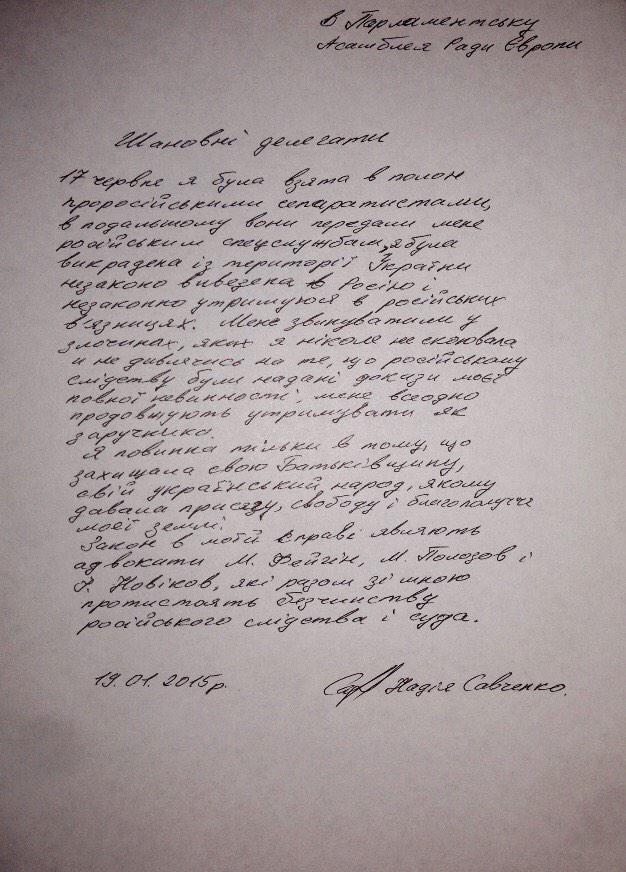 В Парламентську
Асамблея Ради Європи
Шановні делегати
17 червне я була взята в полон
проросійськими сепаратистами,
в подальшому вони передали мене
російським спецслужбам, я була
викрадена із території України
незаконо вивезена в Росію і
незаконно утримуюся в російських
в'язницях. Мене звинуватили у
злочинах, яких я ніколе не скоювала
и не дивлячись на те, що російському
слідству були надані докази моєї
повної невинності, мене всеодно
продовжують утримувати як
заручника.
Я повинна тільки в тому, що
захищала свою Батьківщину,
свій український народ, якому
давала присягу, свободу і благополуччя
моєї землі.
Закон в моїй справі являють
адвокати М. Фейгін, М. Полозов і
І. Новіков, які разом зі мною
протистоять безчинству
російського слідства і суда.
19.01.2015р.
Надія Савченко.